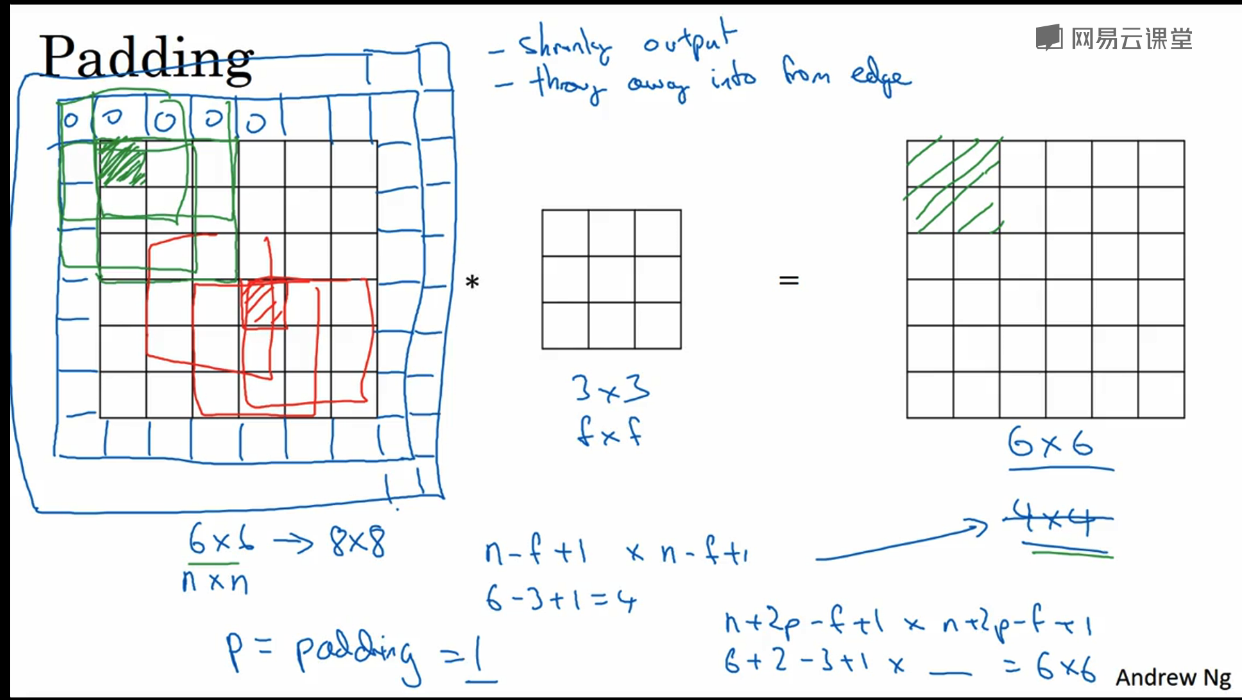 Padding
- shrinky output
- throw away info from edge
网易云课堂
0 0 0 0 0
* =
3 × 3
f × f
6 × 6
4 × 4
6 × 6 → 8 × 8
n × n
n - f + 1 × n - f + 1
6 - 3 + 1 = 4
p = padding = 1
n + 2p - f + 1 × n + 2p - f + 1
6 + 2 - 3 + 1 × __ = 6 × 6
Andrew Ng